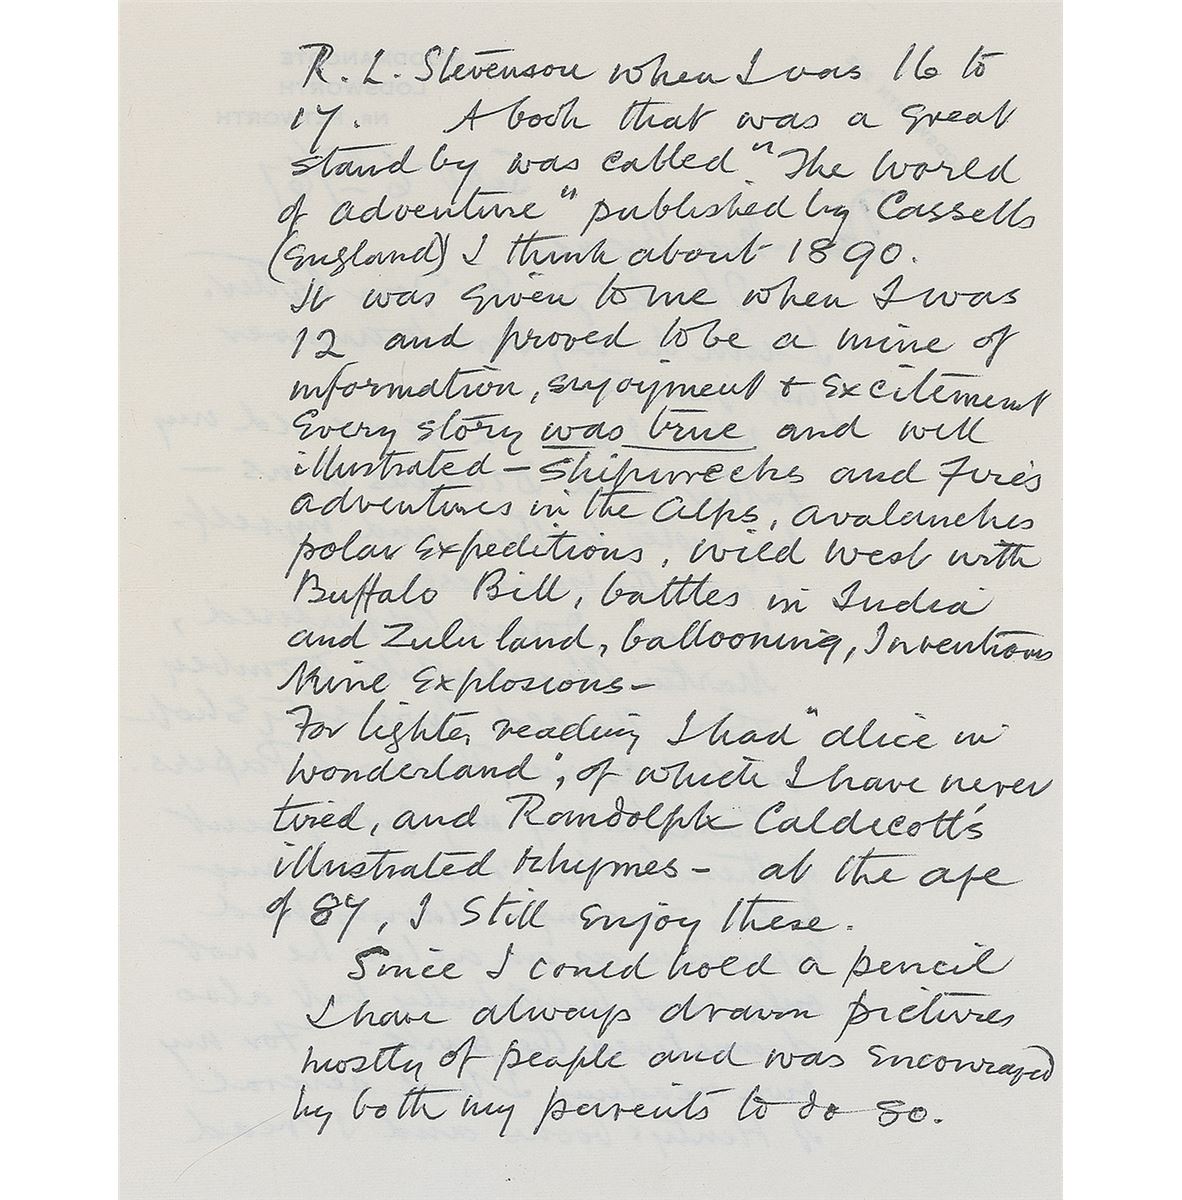 R. L. Stevenson when I was 16 to
17. A book that was a great
stand by was called "The World
of adventure" published by Cassells
(England) I think about 1890.
It was given to me when I was
12 and proved to be a mine of
information, enjoyment + excitement
Every story was true and well
illustrated - Shipwrecks and Fires
adventures in the Alps, avalanches
polar Expeditions, wild west with
Buffalo Bill, battles in India
and Zulu land, ballooning, Inventions
Mine Explosions -
For lighter reading I had "alice in
wonderland", of which I have never
tired, and Randolph Caldecott's
illustrated rhymes - at the age
of 87, I still enjoy these.
Since I could hold a pencil
I have always drawn pictures
mostly of people and was encouraged
by both my parents to do so.